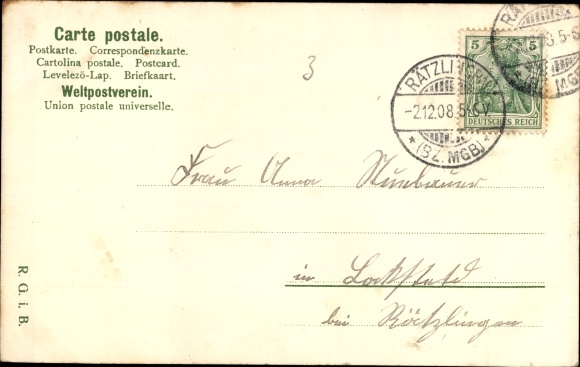 Carte postale.
Postkarte. Correspondenzkarte.
Cartolina postale. Postcard.
Levelező-Lap. Briefkaart.
Weltpostverein.
Union postale universelle.
3
5 5
DEUTSCHES REICH
RÄTZLINGEN
-2.12.08.5-6V.
* (BZ. MGB) *
Frau Anna
in Lockstedt
bei Rätzlingen
R. G. i. B.